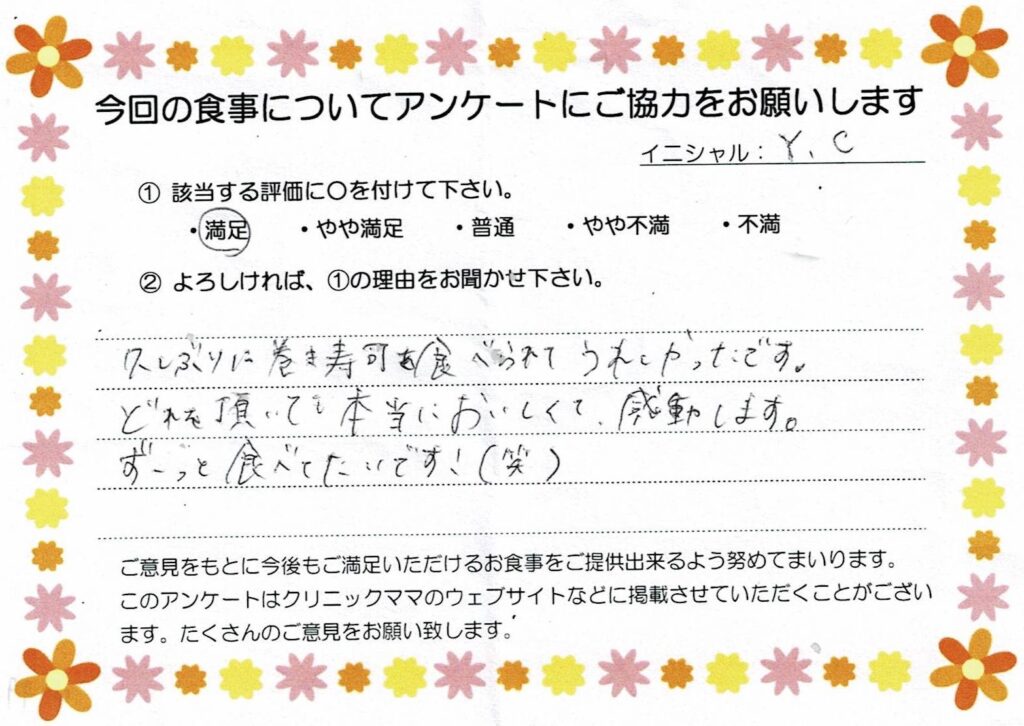 今回の食事についてアンケートにご協力をお願いします
イニシャル： Y、C
① 該当する評価に〇を付けて下さい。
・満足 ・やや満足 ・普通 ・やや不満 ・不満
② よろしければ、①の理由をお聞かせ下さい。
久しぶりに巻き寿司を食べられてうれしかったです。
どれを頂いても本当においしくて、感動します。
ずーっと食べてたいです！(笑)
ご意見をもとに今後もご満足いただけるお食事をご提供出来るよう努めてまいります。
このアンケートはクリニックママのウェブサイトなどに掲載させていただくことがござい
ます。たくさんのご意見をお願い致します。